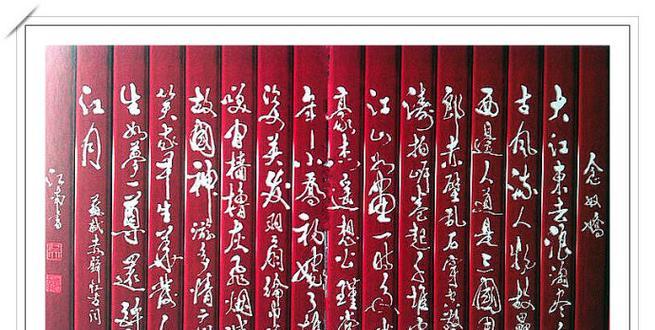 念奴嬌
大江東去浪淘尽
古風流人物故壘
西邊人道是三國周
郎赤壁乱石穿空
濤拍岸卷起千堆
江山如畫一時多少
豪杰遥想公瑾當
年小喬初嫁了雄
姿英发羽扇綸巾
笑间檣櫓灰飛烟滅
故國神游多情应
笑我早生華发
生如夢一尊還酹
江月
蘇軾赤壁怀古詞